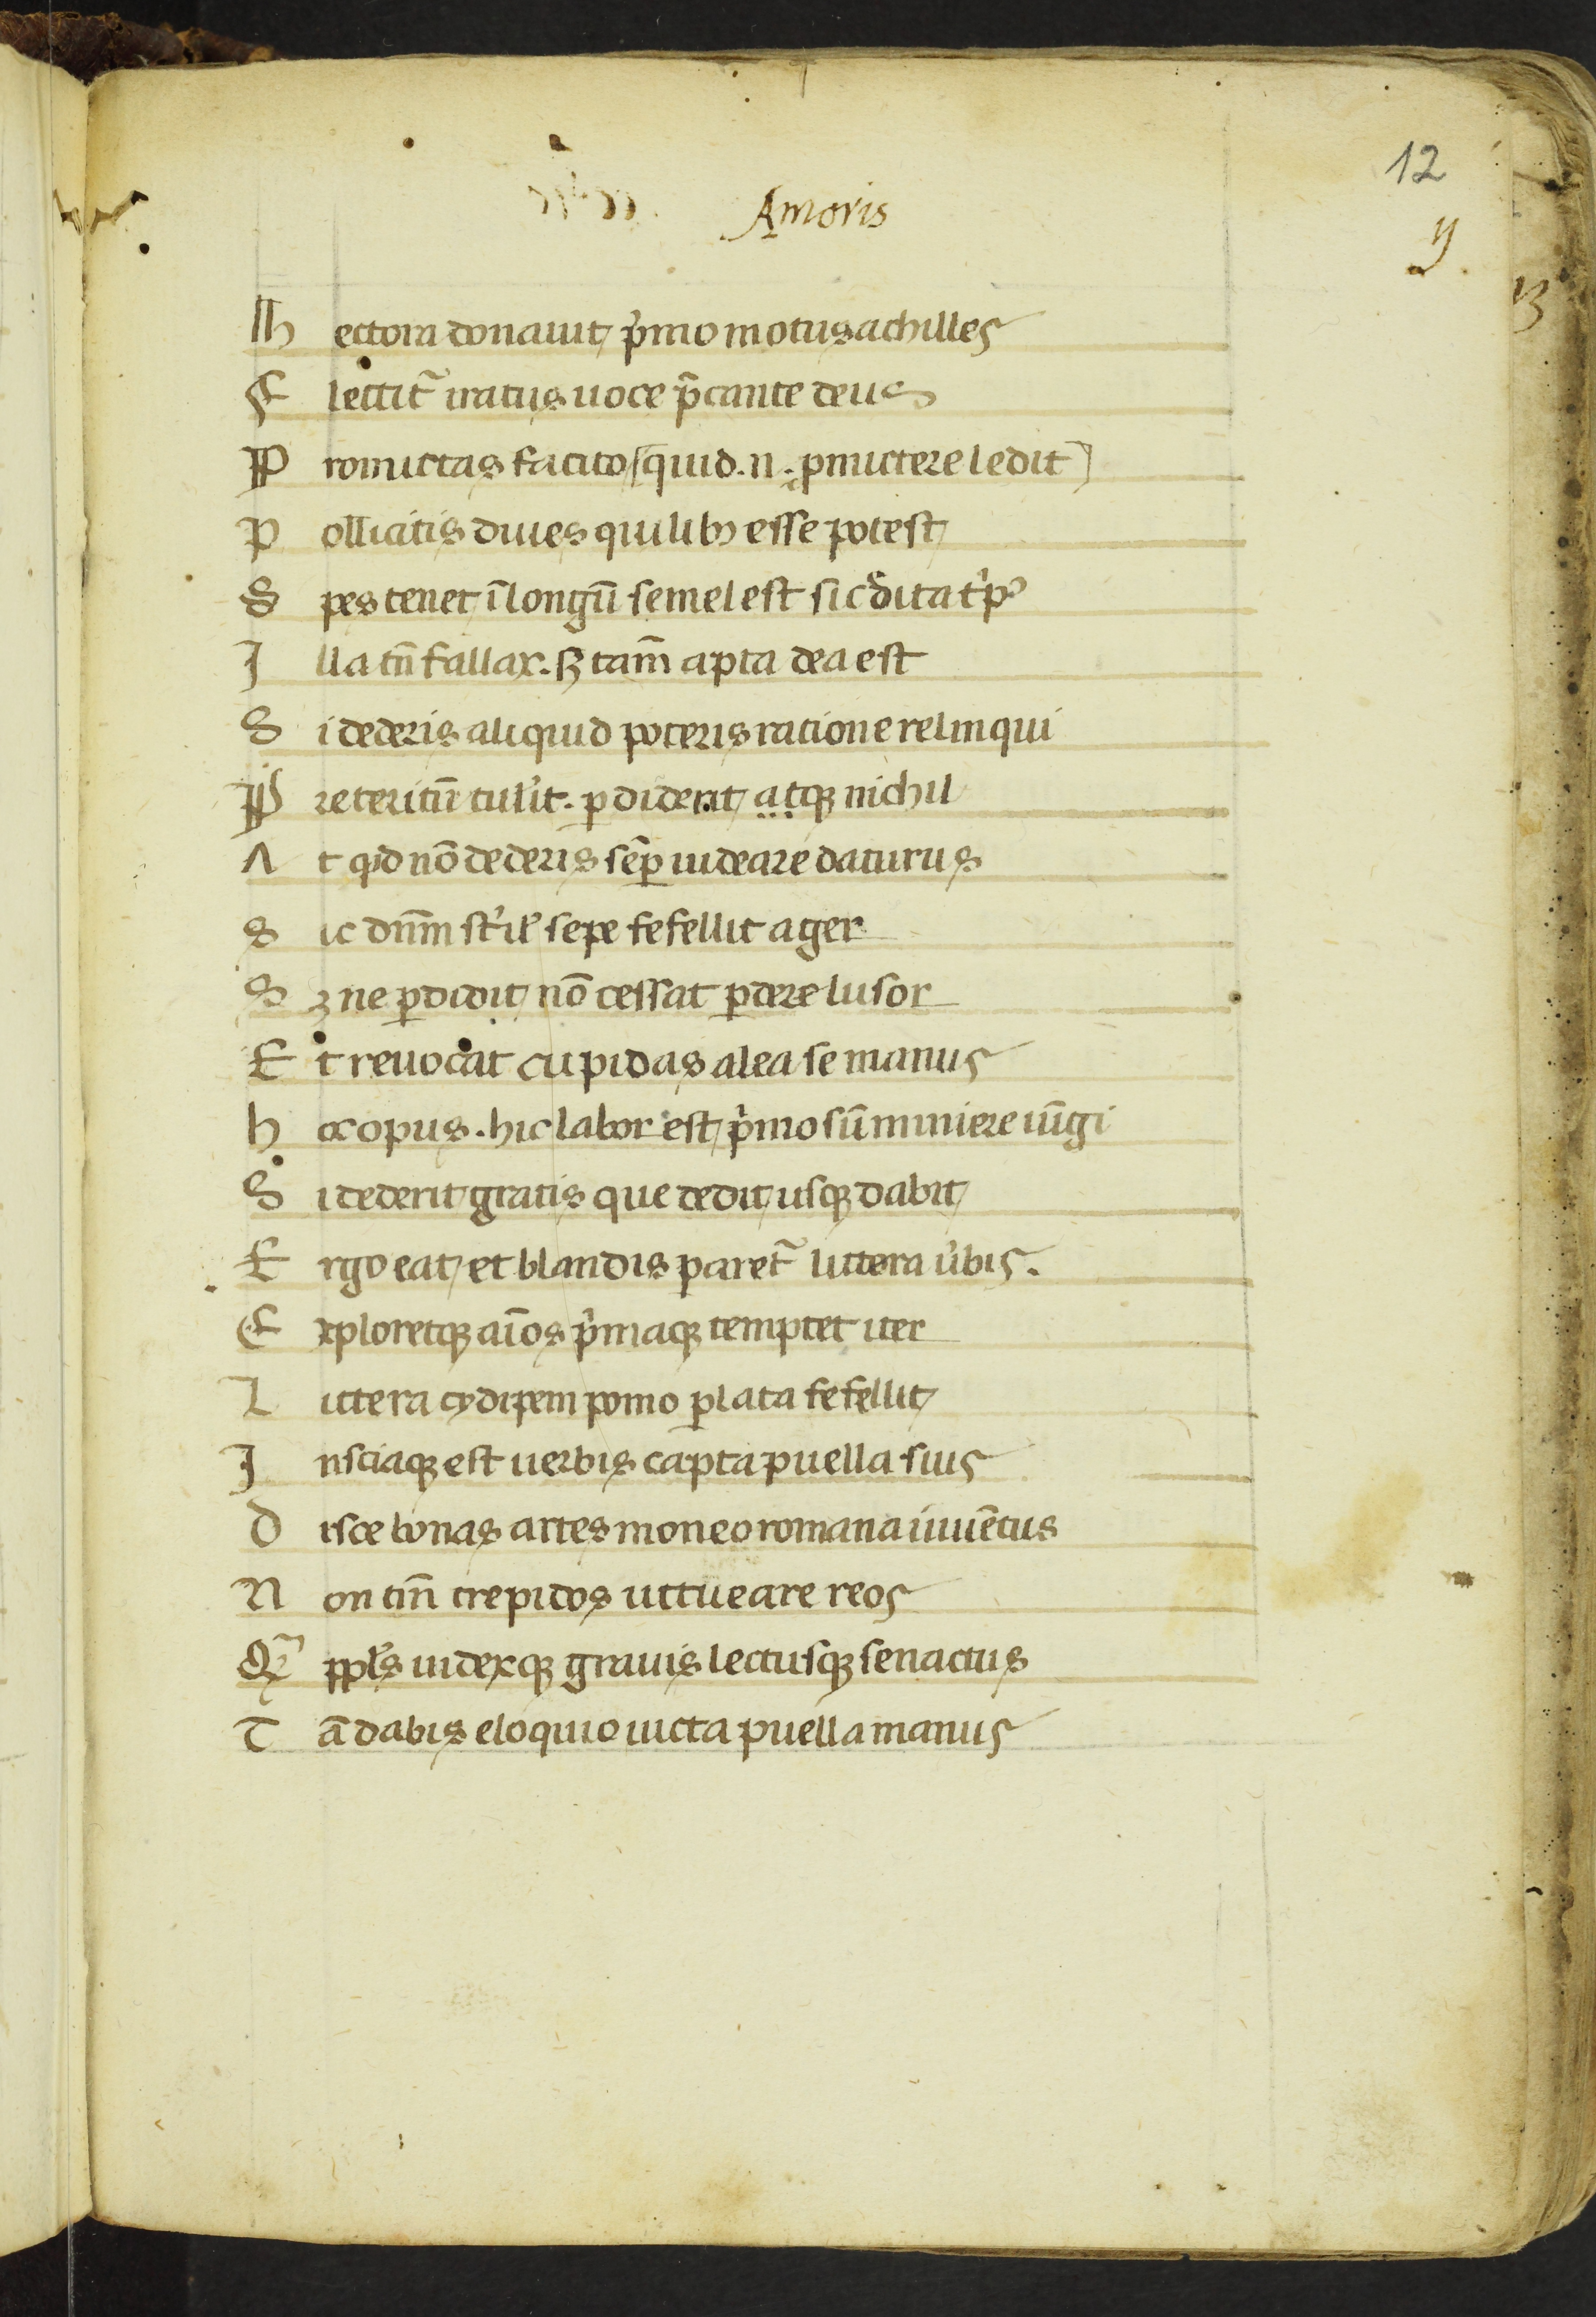 12
Amoris
y.
13
Hectora donauit p̾mo motus achilles
Flectit᷑ iratus uoce p̃cante deus
Promictas facito (quid .n. ꝓmictere ledit)
Pollicitis diues quilibꝫ esse potest
Spes tenet ĩ longũ semel est si cͬdita tꝑ̾e
Illa tñ fallax. sꝫ tam̃ apta dea est
Si dederis aliquid poteris ratione relinqui
Preteritũ tul̾it. ꝑdiderit atqꝫ nichil
At qͥd nõ dederis sẽꝑ uideare daturus
Sic dn̄m st̾il̾ sepe fefellit ager
Sꝫ ne ꝑdidit nõ cessat ꝑdere lusor
Et reuocat cupidas alea se manus
hoc opus. hic labor est p̾mo sũ miniere iũgi
Si dederit gratis que dedit usqꝫ dabit
Ergo eat et blandis paret᷑ littera u̾bis.
Exploretqꝫ aĩos p̾maqꝫ temptet iter
Littera cydipem pomo ꝑlata fefellit
Insciaqꝫ est uerbis capta puella suis
Disce bonas artes moneo romana iuuẽtus
Non tm̃ trepidos ut tueare reos
Qͣ̃ ppl̾s iudexqꝫ grauis lectusqꝫ senactus
Tã dabis eloquio uicta puella manus